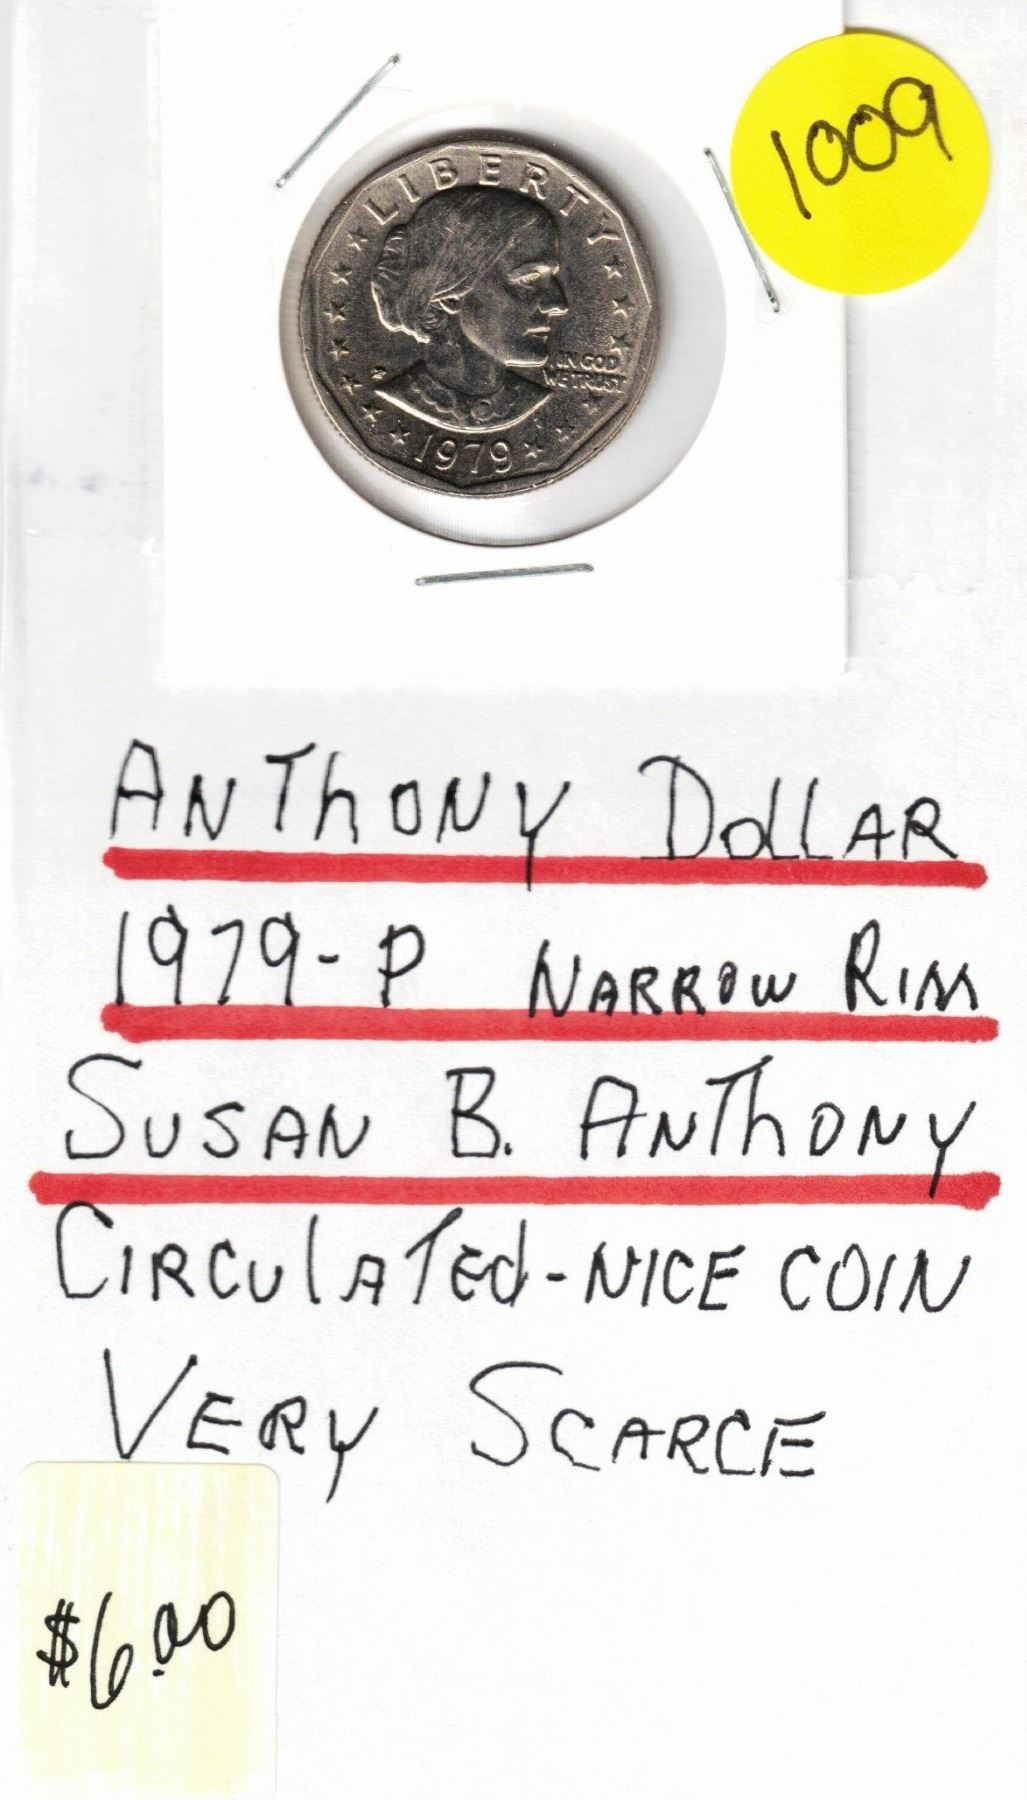 1009
LIBERTY
IN GOD
WE TRUST
P
1979
ANThONY DollAR
1979-P NARROW RIM
SUSAN B. ANThONY
CIRCUlATEd-NICE COIN
VERY SCARCE
$6.00